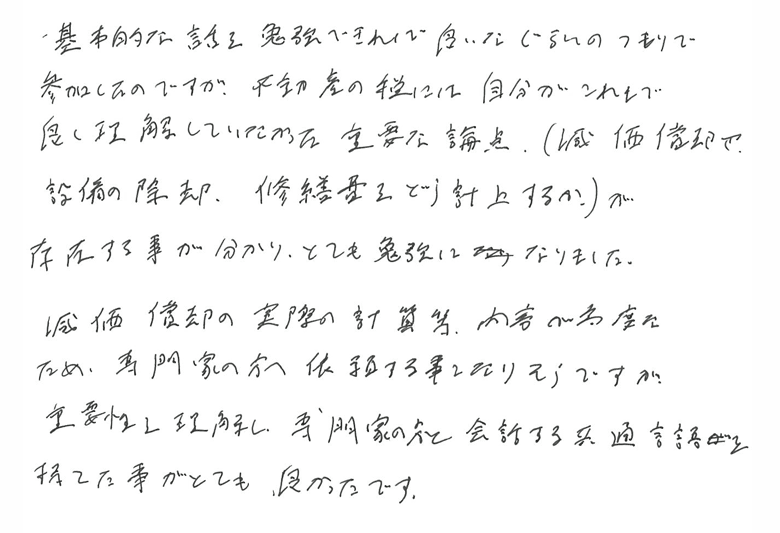 ・基本的な話を勉強できれば良いなぐらいのつもりで
参加したのですが、不動産の税には自分がこれまで
良く理解していなかった重要な論点、(減価償却や、
設備の除却、修繕費をどう計上するか)が
存在する事が分かり、とても勉強になりました。
減価償却の実際の計算等、内容が高度な
ため、専門家の方へ依頼する事になりそうですが、
重要性を理解し、専門家の方と会話する共通言語を
持てた事がとても良かったです。